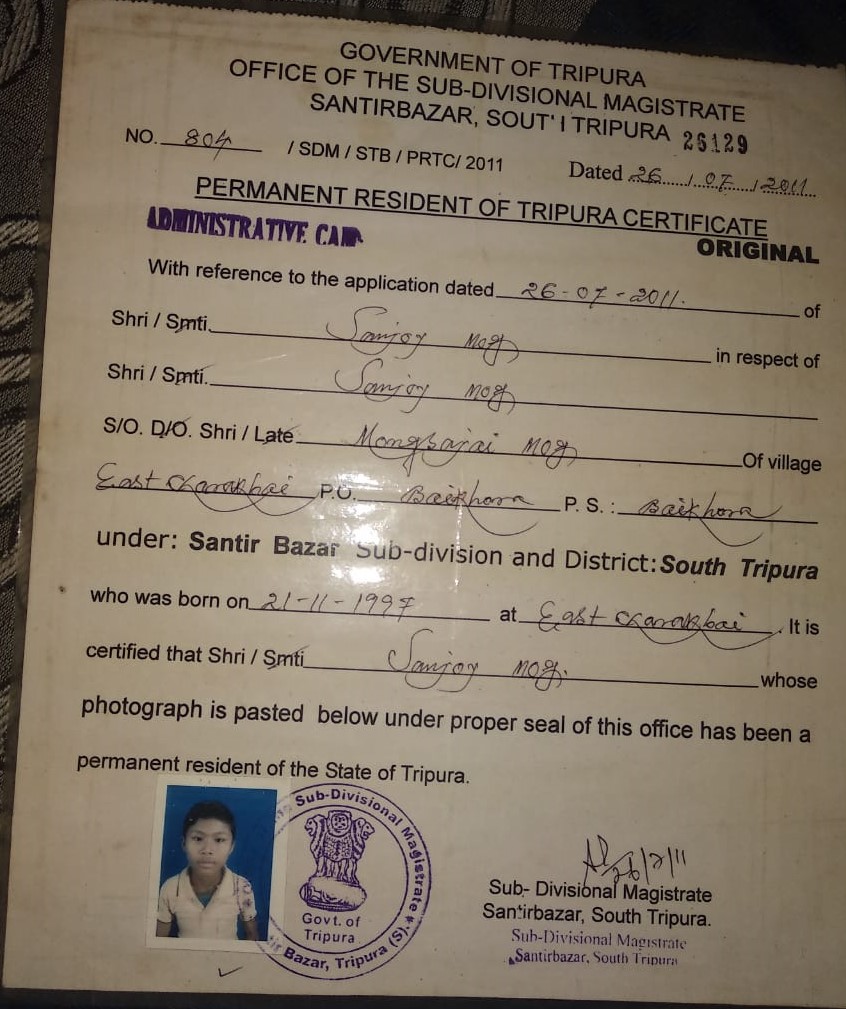 GOVERNMENT OF TRIPURA
OFFICE OF THE SUB-DIVISIONAL MAGISTRATE
SANTIRBAZAR, SOUT' I TRIPURA 26129
NO. 804 / SDM / STB / PRTC/ 2011 Dated 26 / 07 / 2011
PERMANENT RESIDENT OF TRIPURA CERTIFICATE
ADMINISTRATIVE CAMP ORIGINAL
With reference to the application dated 26-07-2011. of
Shri / Smti. Sanjoy Mog in respect of
Shri / Smti. Sanjoy Mog
S/O. D/O. Shri / Late Mongsajai Mog Of village
East Charakbai P.O. Baikhora P. S. : Baikhora
under: Santir Bazar Sub-division and District: South Tripura
who was born on 21-11-1997 at East Charakbai. It is
certified that Shri / Smti Sanjoy Mog. whose
photograph is pasted below under proper seal of this office has been a
permanent resident of the State of Tripura.
Sub-Divisional Magistrate
Govt. of
Tripura
Bazar, Tripura (S)
26/7/11
Sub- Divisional Magistrate
Santirbazar, South Tripura.
Sub-Divisional Magistrate
Santirbazar, South Tripura